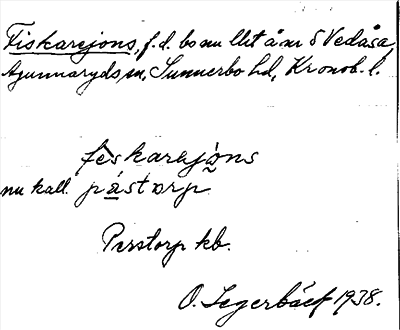 Fiskarejons, f.d. bo nu llit å nr 8 Vedåsa,
Agunnaryds sn, Sunnerbo hd, Kronob. l.
fèskarejòns
nu kall. pástorp
Perstorp kb.
O. Segerbäck 1938.